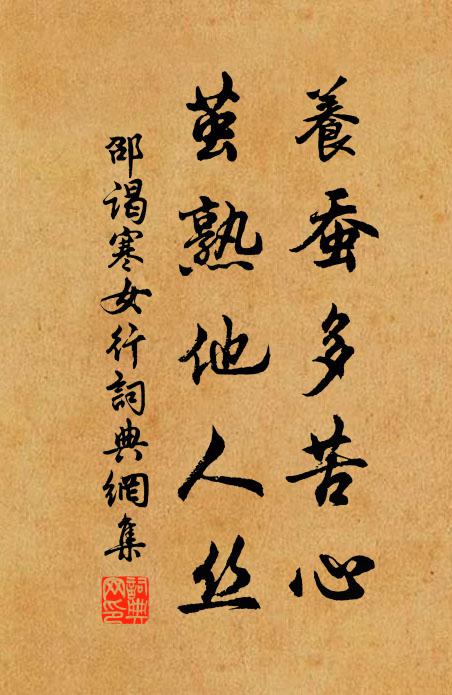 養蚕多苦心
茧熟他人丝
邵谒寒女行詞典網集
詞典网印